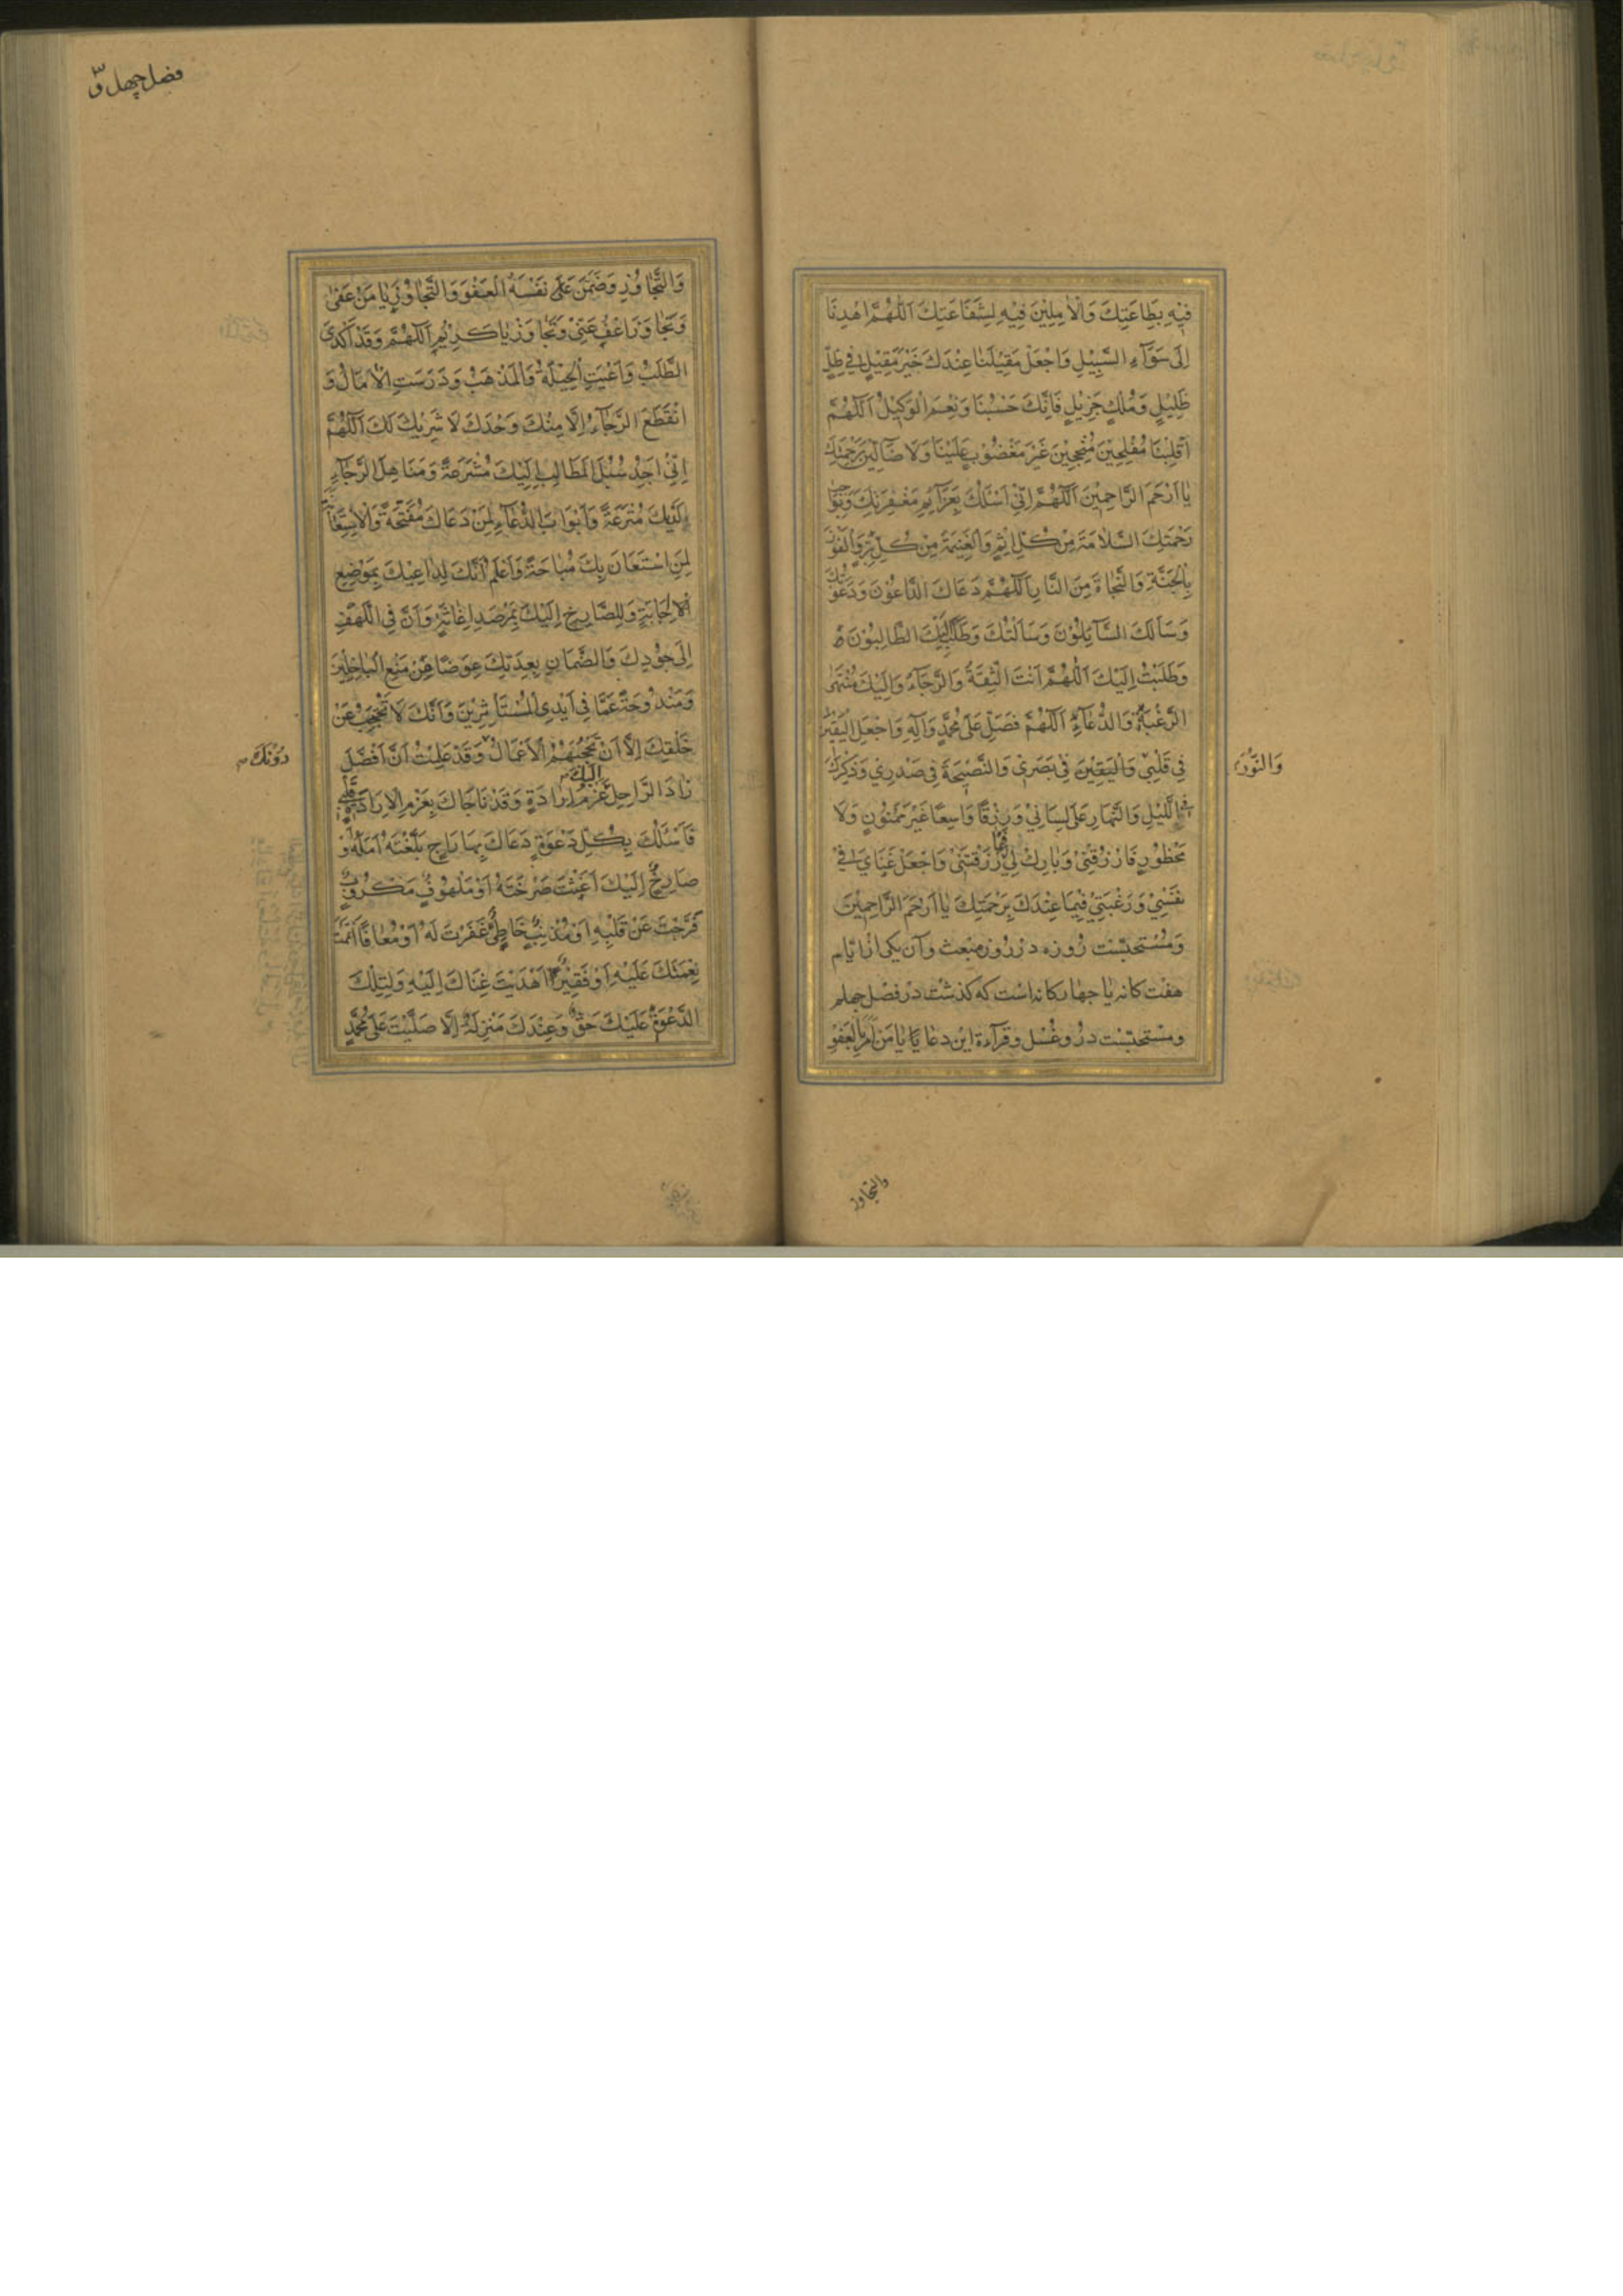 فِيْهِ بِطَاعَتِكَ وَالْاٰمِلِيْنَ فِيْهِ لِشَفَاعَتِكَ اَللّٰهُمَّ اهْدِنَا
اِلَى سَوَآءِ السَّبِيْلِ وَاجْعَلْ مَقِيْلَنَا عِنْدَكَ خَيْرَ مَقِيْلٍ فِي ظِلٍّ
ظَلِيْلٍ وَمُلْكٍ جَزِيْلٍ فَاِنَّكَ حَسْبُنَا وَنِعْمَ الْوَكِيْلُ اَللّٰهُمَّ
اَقْلِبْنَا مُفْلِحِيْنَ مُنْجِحِيْنَ غَيْرَ مَغْضُوْبٍ عَلَيْنَا وَلَا ضَآلِّيْنَ بِرَحْمَتِكَ
يَا اَرْحَمَ الرَّاحِمِيْنَ اَللّٰهُمَّ اِنِّيْ اَسْئَلُكَ بِعَزَآئِمِ مَغْفِرَتِكَ وَبِوَاجِبِ
رَحْمَتِكَ السَّلَامَةَ مِنْ كُلِّ اِثْمٍ وَالْغَنِيْمَةَ مِنْ كُلِّ بِرٍّ وَالْفَوْزَ
بِالْجَنَّةِ وَالنَّجَاةَ مِنَ النَّارِ اَللّٰهُمَّ دَعَاكَ الدَّاعُوْنَ وَدَعَوْتُكَ
وَسَاَلَكَ السَّآئِلُوْنَ وَسَاَلْتُكَ وَطَلَبَ اِلَيْكَ الطَّالِبُوْنَ
وَطَلَبْتُ اِلَيْكَ اَللّٰهُمَّ اَنْتَ الثِّقَةُ وَالرَّجَآءُ وَاِلَيْكَ مُنْتَهَى
الرَّغْبَةِ وَالدُّعَآءِ اَللّٰهُمَّ فَصَلِّ عَلَى مُحَمَّدٍ وَاٰلِهِ وَاجْعَلِ الْيَقِيْنَ
فِي قَلْبِيْ وَالْيَقِيْنَ فِي بَصَرِيْ وَالنَّصِيْحَةَ فِي صَدْرِيْ وَذِكْرَكَ
وَالنُّوْرَ
فِي اللَّيْلِ وَالنَّهَارِ عَلَى لِسَانِيْ وَرِزْقًا وَاسِعًا غَيْرَ مَمْنُوْنٍ وَلَا
مَحْظُوْرٍ فَارْزُقْنِيْ وَبَارِكْ لِيْ فِيْمَا رَزَقْتَنِيْ وَاجْعَلْ غِنَايَ فِي
نَفْسِيْ وَرَغْبَتِيْ فِيْمَا عِنْدَكَ بِرَحْمَتِكَ يَا اَرْحَمَ الرَّاحِمِيْنَ
وَمُسْتَحَبّست روزه در روز مبعث وآن یکی از ایام
هفت کانه یا چهارکانه است که کذشت در فصل چهلم
ومستحبّست درو غسل وقرآءة این دعا یَا مَنْ اَمَرَ بِالْعَفْوِ
والتجاوز
فصل چهل و
وَالتَّجَاوُزِ وَضَمَّنَ عَلَى نَفْسِهِ الْعَفْوَ وَالتَّجَاوُزَ يَا مَنْ عَفَى
وَتَجَاوَزَ اعْفُ عَنِّيْ وَتَجَاوَزْ يَا كَرِيْمُ اَللّٰهُمَّ وَقَدْ اَكْدَى
الطَّلَبُ وَاَعْيَتِ الْحِيْلَةُ وَالْمَذْهَبُ وَدَرَسَتِ الْاٰمَالُ وَ
انْقَطَعَ الرَّجَآءُ اِلَّا مِنْكَ وَحْدَكَ لَا شَرِيْكَ لَكَ اَللّٰهُمَّ
اِنِّيْ اَجِدُ سُبُلَ الْمَطَالِبِ اِلَيْكَ مُشْرَعَةً وَمَنَاهِلَ الرَّجَآءِ
اِلَيْكَ مُتْرَعَةً وَاَبْوَابَ الدُّعَآءِ لِمَنْ دَعَاكَ مُفَتَّحَةً وَالْاِسْتِعَانَةَ
لِمَنِ اسْتَعَانَ بِكَ مُبَاحَةً وَاَعْلَمُ اَنَّكَ لِدَاعِيْكَ بِمَوْضِعِ
الْاِجَابَةِ وَلِلصَّارِخِ اِلَيْكَ بِمَرْصَدِ اِغَاثَةٍ وَاَنَّ فِي اللَّهْفِ
اِلَى جُوْدِكَ وَالضَّمَانِ بِعِدَتِكَ عِوَضًا مِنْ مَنْعِ الْبَاخِلِيْنَ
وَمَنْدُوْحَةً عَمَّا فِي اَيْدِي الْمُسْتَاْثِرِيْنَ وَاَنَّكَ لَا تَحْتَجِبُ عَنْ
خَلْقِكَ اِلَّا اَنْ تَحْجُبَهُمُ الْاَعْمَالُ وَقَدْ عَلِمْتُ اَنَّ اَفْضَلَ
دُوْنَكَ
زَادِ الرَّاحِلِ اِلَيْكَ عَزْمُ اِرَادَةٍ وَقَدْ نَاجَاكَ بِعَزْمِ الْاِرَادَةِ قَلْبِيْ
فَاَسْئَلُكَ بِكُلِّ دَعْوَةٍ دَعَاكَ بِهَا رَاجٍ بَلَّغْتَهُ اَمَلَهُ اَوْ
صَارِخٌ اِلَيْكَ اَغَثْتَ صَرْخَتَهُ اَوْ مَلْهُوْفٌ مَكْرُوْبٌ
فَرَّجْتَ عَنْ قَلْبِهِ اَوْ مُذْنِبٌ خَاطِئٌ غَفَرْتَ لَهُ اَوْ مُعَافًا اَتْمَمْتَ
نِعْمَتَكَ عَلَيْهِ اَوْ فَقِيْرٌ اَهْدَيْتَ غِنَاكَ اِلَيْهِ وَلِتِلْكَ
الدَّعْوَةِ عَلَيْكَ حَقٌّ وَعِنْدَكَ مَنْزِلَةٌ اِلَّا صَلَّيْتَ عَلَى مُحَمَّدٍ